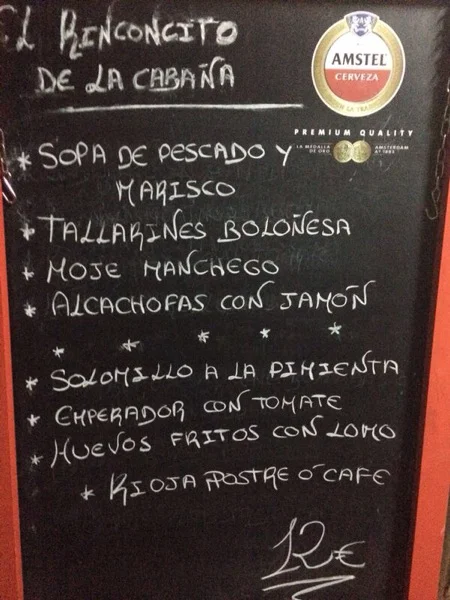 EL RINCONCITO
DE LA CABAÑA
AMSTEL
CERVEZA
PREMIUM QUALITY
LA MEDALLA
DE ORO
AMSTERDAM
Aº 1883
* SOPA DE PESCADO Y
MARISCO
* TALLARINES BOLOÑESA
* MOJE MANCHEGO
* ALCACHOFAS CON JAMÓN
* * * * *
* SOLOMILLO A LA PIMIENTA
* EMPERADOR CON TOMATE
* HUEVOS FRITOS CON LOMO
* RIOJA POSTRE Ó CAFE
12€